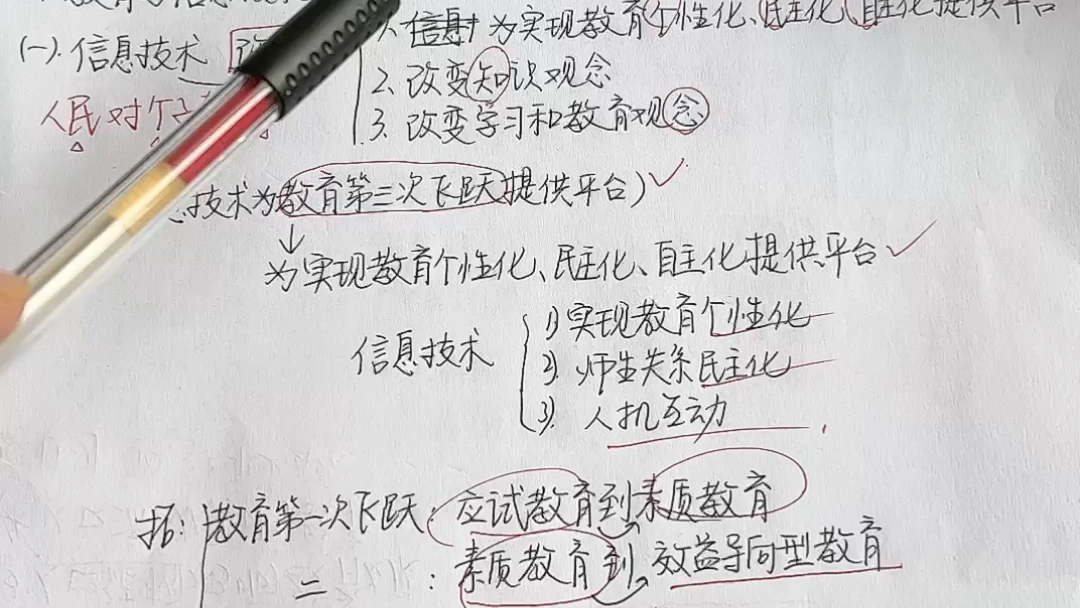 1. 信息 为实现教育个性化、民主化、自主化提供平台
(一). 信息技术 改
2. 改变知识观念
人民对个
3. 改变学习和教育观念
息技术为教育第三次飞跃提供平台)
为实现教育个性化、民主化、自主化提供平台
1) 实现教育个性化
信息技术
2). 师生关系民主化
3). 人机互动
拓: 教育第一次飞跃: 应试教育到素质教育
二 : 素质教育到效益导向型教育